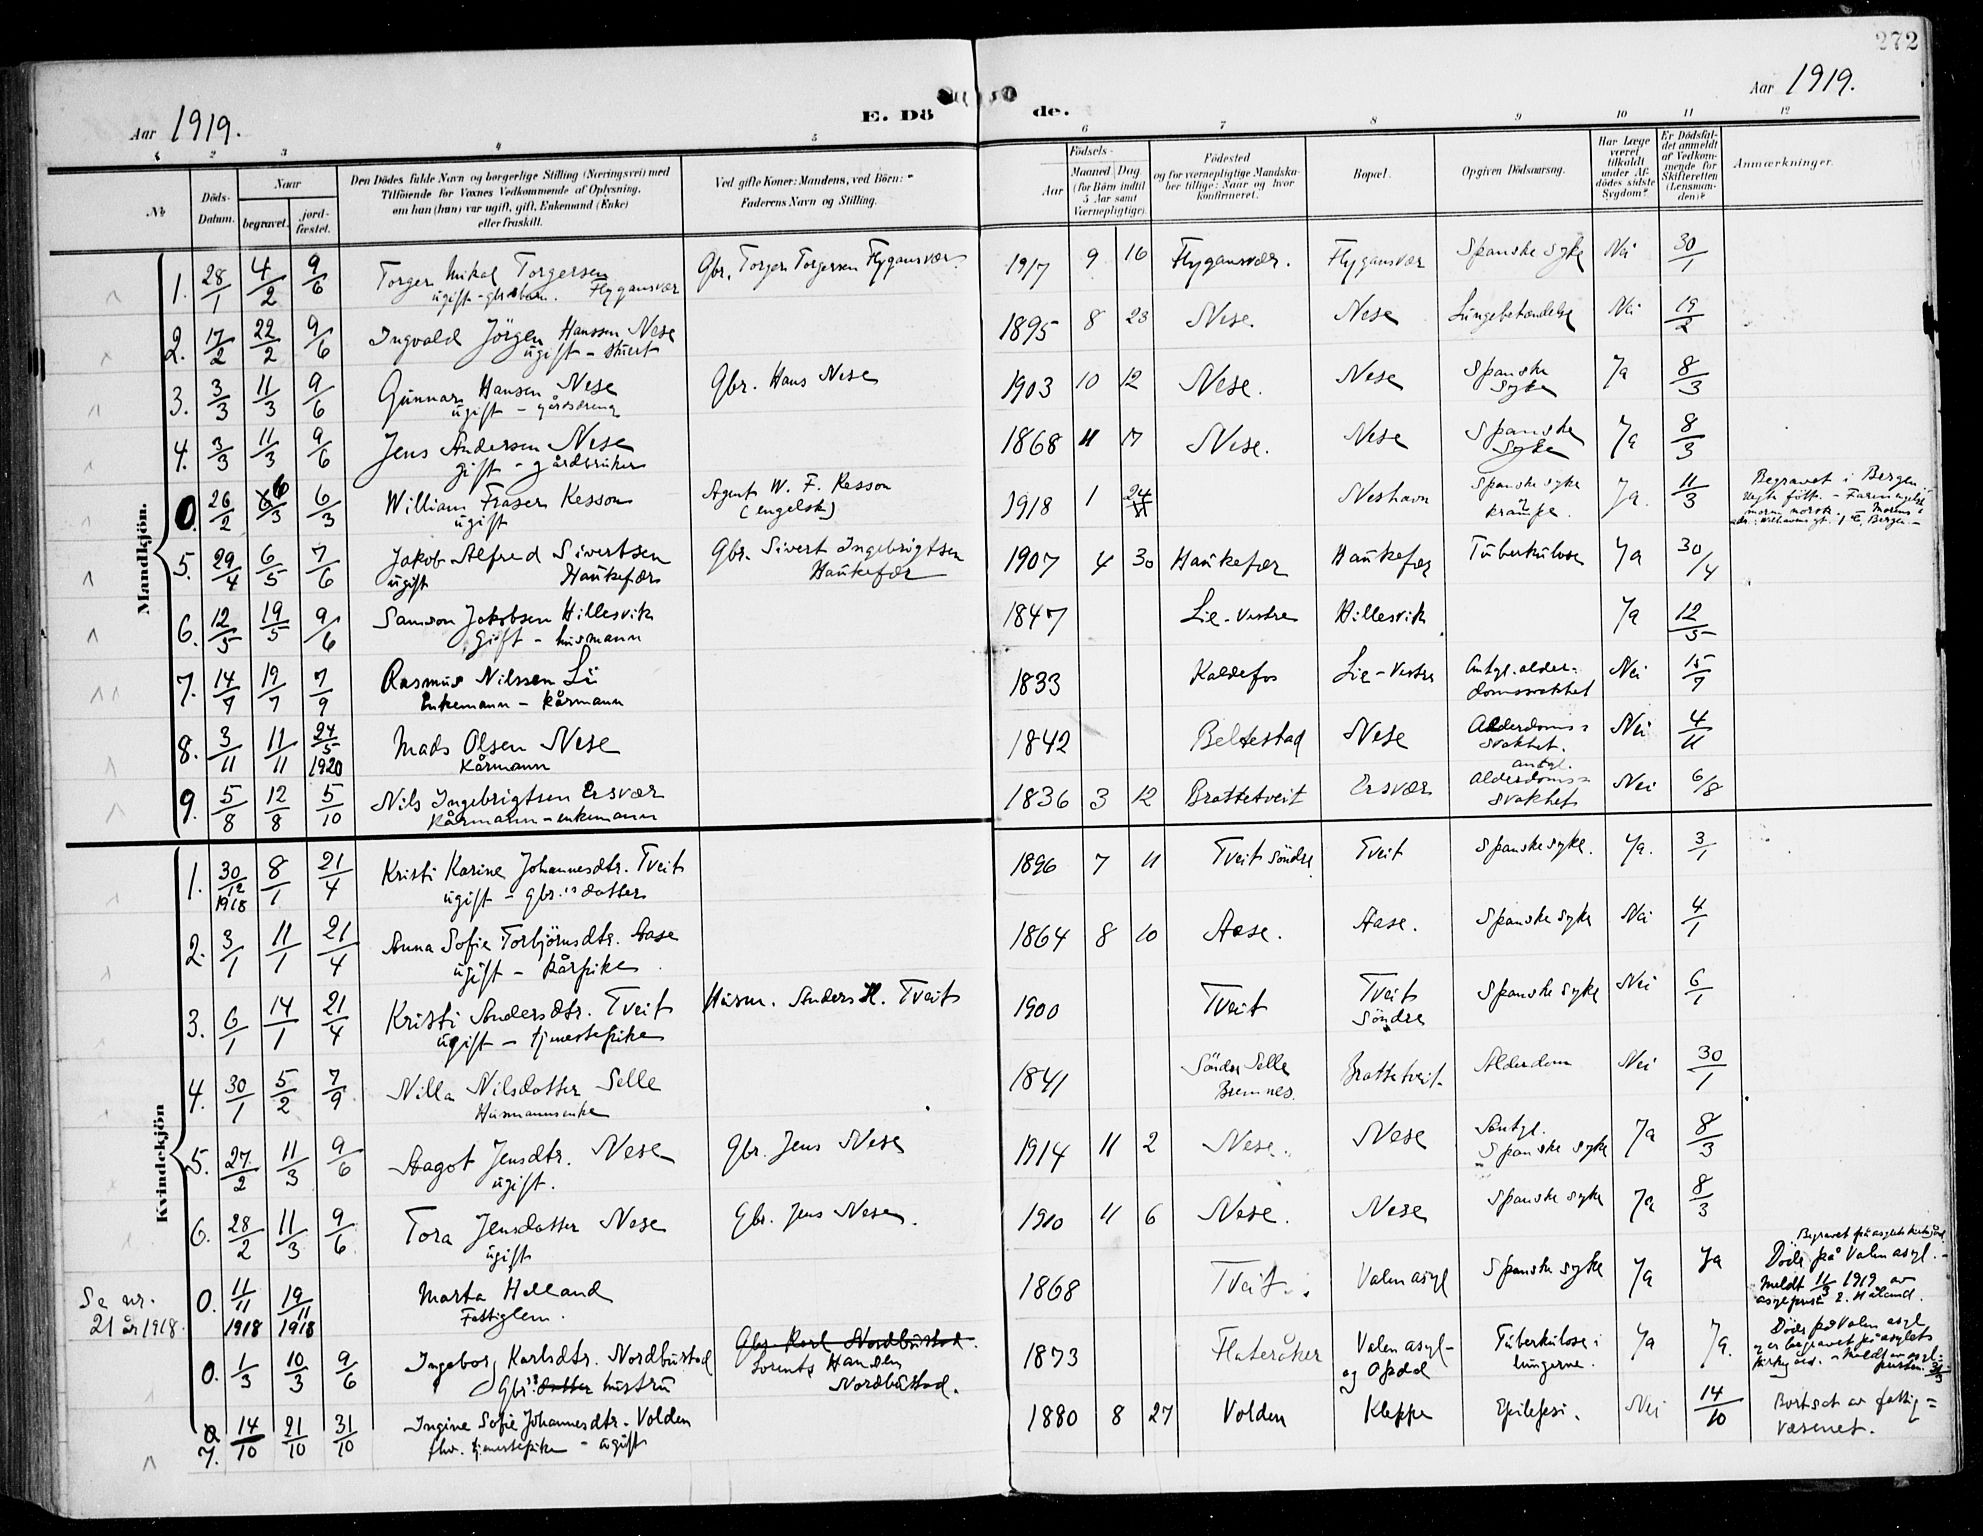 272
Aar 1919.
E. Dö de.
Aar 1919.
1 2 3 4 5 6 7 8 9 10 11 12
№
Döds-Datum.
Naar
begravet.
jord-fæstet.
Den Dödes fulde Navn og borgerlige Stilling (Næringsvei) med
Tilföiende for Voxnes Vedkommende af Oplysning,
om han (hun) var ugift, gift, Enkemand (Enke)
eller fraskilt.
Ved gifte Koner: Mandens, ved Börn:
Faderens Navn og Stilling.
Födsels-
Aar
Maaned Dag
(for Börn indtil 5 Aar samt Værnepligtige).
Födested
og for værnepligtige Mandskaber tillige: Naar og hvor konfirmeret.
Bopæl.
Opgiven Dödsaarsag.
Har Læge været tilkaldt under Afdödes sidste Sygdom?
Er Dödsfaldet anmeldt af Vedkommende for Skifteretten (Lensmanden)?
Anmærkninger.
Mandkjön.
1. 28/1 4/2 9/6 Torger Mikal Torgersen Gbr. Torger Torgersen Flygansvær. 1917 9 16 Flygansvær. Flygansvær Spanske syke Nei 30/1
ugift - gbr.s barn. Flygansvær
2. 17/2 22/2 9/6 Ingvald Jörgen Hanssen Nese 1895 8 23 Nese. Nese Lungebetændelse Nei 19/2
ugift - stuert
3. 3/3 11/3 9/6 Gunnar Hansen Nese Gbr. Hans Nese 1903 10 12 Nese. Nese Spanske syke Ja 8/3
ugift - gårdsdreng
4. 3/3 11/3 9/6 Jens Andersen Nese 1868 11 17 Nese. Nese Spanske syke Ja 8/3
gift - gårdbruker
0. 26/2 6/3 6/3 William Fraser Kesson Agent W. F. Kesson 1918 1 24 Neshavn Spanske syke Ja. 11/3 Begravet i Bergen.
ugift (engelsk) krampe.
5. 29/4 6/5 7/6 Jakob Alfred Sivertsen Gbr. Sivert Ingebrigtsen 1907 4 30 Haukefær Haukefær Tuberkulose Ja 30/4
ugift Haukefær Haukefær
6. 12/5 19/5 9/6 Samson Jakobsen Hillesvik 1847 Lie-Vestre Hillesvik Ja 12/5
Gift - husmann
7. 14/7 19/7 7/9 Rasmus Nilssen Li 1833 Kaldefos Lie-Vestre Antgl. alder-domssvakhet Nei 15/7
Enkemann - kårmann
8. 3/11 11/11 24/5 1920 Mads Olsen Nese 1842 Beltestad Nese Alderdoms-svakhet. Nei 4/11
Kårmann
9. 5/8 12/8 5/10 Nils Ingebrigtsen Ersvær 1836 3 12 Brattetveit Ersvær antgl. Alderdoms-svakhet Nei 6/8
Kårmann - enkemann
Kvindekjön
1. 30/12 1918 8/1 21/4 Kristi Karine Johannesdtr. Tveit 1896 7 11 Tveit söndre Tveit Spanske syke. Ja. 3/1
ugift - gbr.'s datter
2. 3/1 11/1 21/4 Anna Sofie Torbjörnsdtr. Aase 1864 8 10 Aase. Aase. Spanske syke Nei 4/1
ugift - kårpike
3. 6/1 14/1 21/4 Kristi Andersdtr. Tveit Husm. Anders H. Tveit 1900 Tveit Tveit Söndre Spanske syke Nei 6/1
ugift - tjenestepike
4. 30/1 5/2 7/9 Nilla Nilsdatter Selle 1841 Söndre Selle Bremnes. Brattetveit Alderdom Nei 30/1
Husmannsenke
5. 27/2 11/3 9/6 Aagot Jensdtr. Nese Gbr. Jens Nese 1914 11 2 Nese. Nese Antgl. Spanske syke Ja 8/3
ugift.
6. 28/2 11/3 9/6 Tora Jensdatter Nese Gbr. Jens Nese. 1910 11 6 Nese. Nese Spanske syke Ja 8/3
ugift
Se nr. 21 år 1918.
0. 11/11 1918 19/11 1918 Marta Helland 1868 Tveit. Valen asyl Spanske syke Ja Ja Begravet på asylets kirkegård. Döde på Valen asyl. - meldt 11/3 1919 av asylprest E. Håland.
Fattiglem.
0. 1/3 10/3 9/6 Ingeborg Karlsdtr. Nordbustad Gbr. Karl Nordbustad. 1873 Flateråker Valen asyl - og Opdal Tuberkulose i lungerne. Ja Ja. Döde på Valen asyl og er begravet på asylets kirkegård. - Meldt av asyl-presten. 31/3
Gbr's datter hustru Lorents Hansen Nordbustad.
0 7. 14/10 21/10 31/10 Ingine Sofie Johannesdtr. Volden 1880 8 27 Volden Kleppe Epilepsi. Nei 14/10 Bortsat av fattig=væsenet.
fhv. tjenestepike - ugift